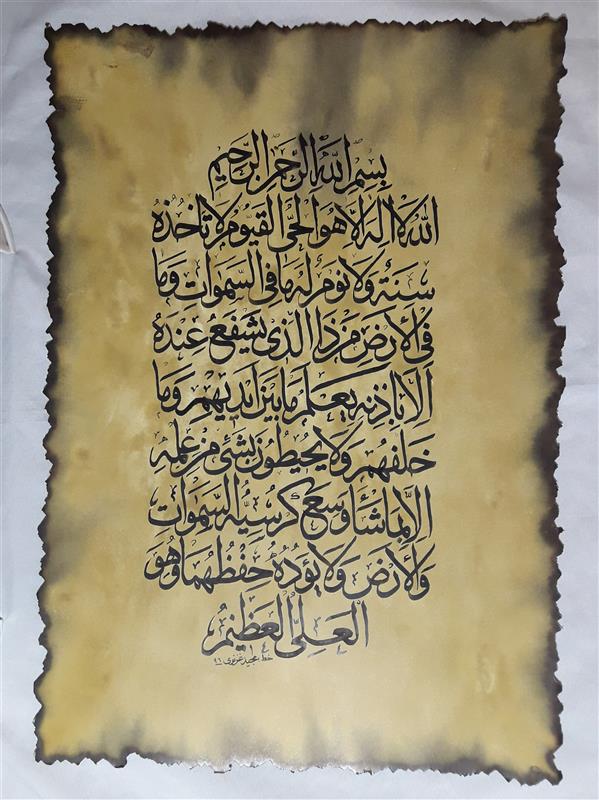 بِسْمِ اللهِ الرَّحْمنِ الرَّحِيمِ
اللهُ لا الهَ الّا هُوَ الحَىُّ القَيّومُ لا تَأخُذُهُ
سِنَةٌ ولا نومٌ لَهُ ما فى السَّمواتِ وَما
فِى الارضِ مَن ذَا الَّذى يَشفَعُ عِندَهُ
الّا بِاذنِهِ يَعلَمُ ما بَينَ اَيديهِم وَما
خَلفَهُم وَلا يُحيطُونَ بِشَئٍ مِن عِلمِهِ
الّا بِما شاءَ وَسِعَ كُرسِيُّهُ السَّمواتِ
وَالأرضَ وَلا يَؤدُهُ حِفظُهُما وَهُوَ
العَلِىُّ العَظيمُ
خط مجيد عزيزى ٩٦